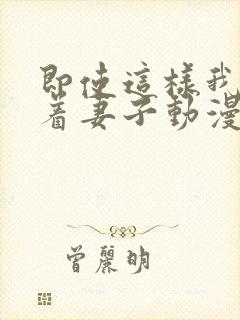 即使這樣我
着妻子動漫
曾麗明